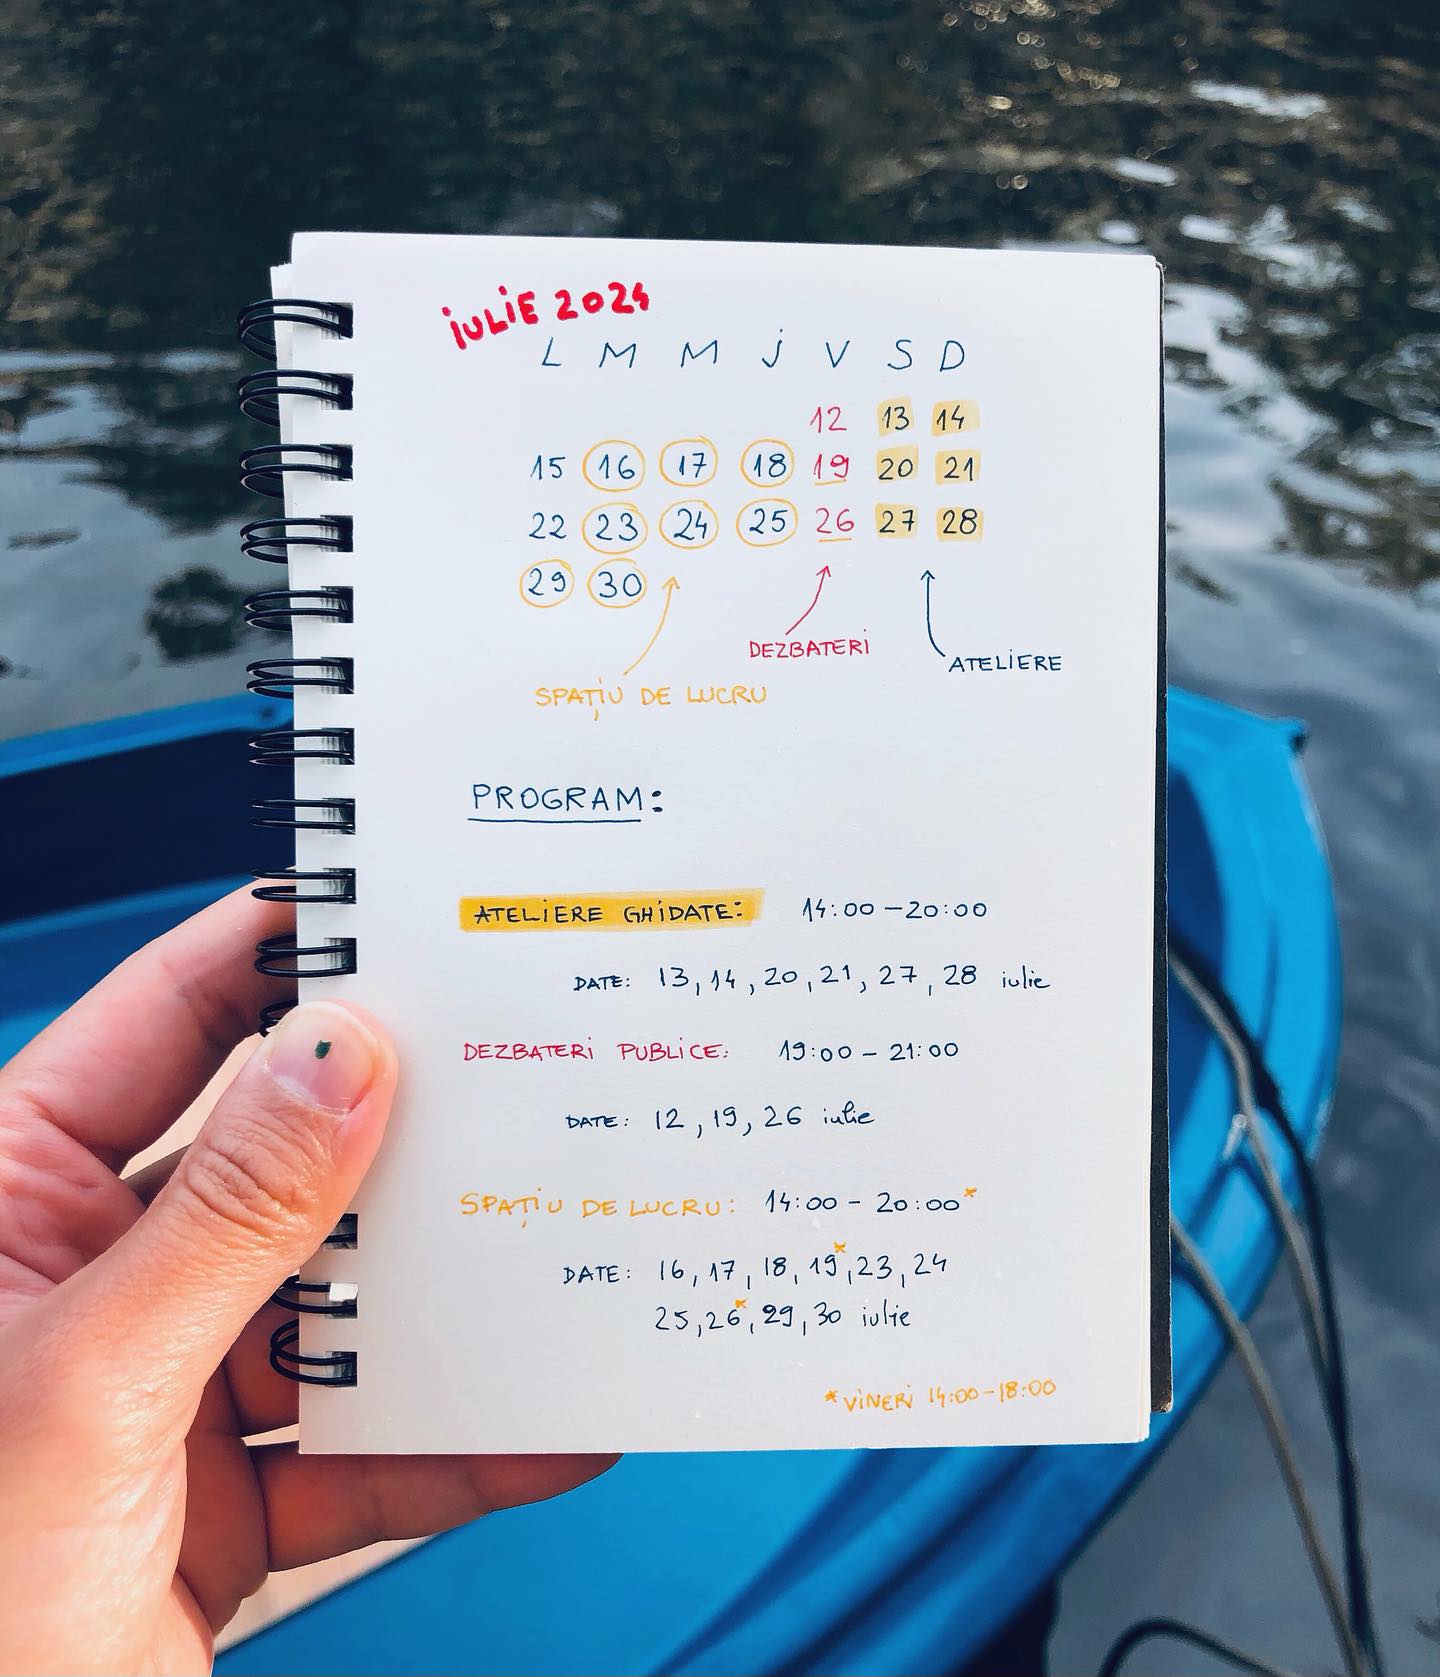 iULiE 2024
L M M J V S D
12 13 14
15 16 17 18 19 20 21
22 23 24 25 26 27 28
29 30
DEZBATERI
ATELIERE
SPAȚIU DE LUCRU
PROGRAM:
ATELIERE GHIDATE: 14:00 - 20:00
DATE: 13, 14, 20, 21, 27, 28 iulie
DEZBATERI PUBLICE: 19:00 - 21:00
DATE: 12, 19, 26 iulie
SPAȚIU DE LUCRU: 14:00 - 20:00*
DATE: 16, 17, 18, 19*, 23, 24
25, 26*, 29, 30 iulie
*VINERI 14:00-18:00